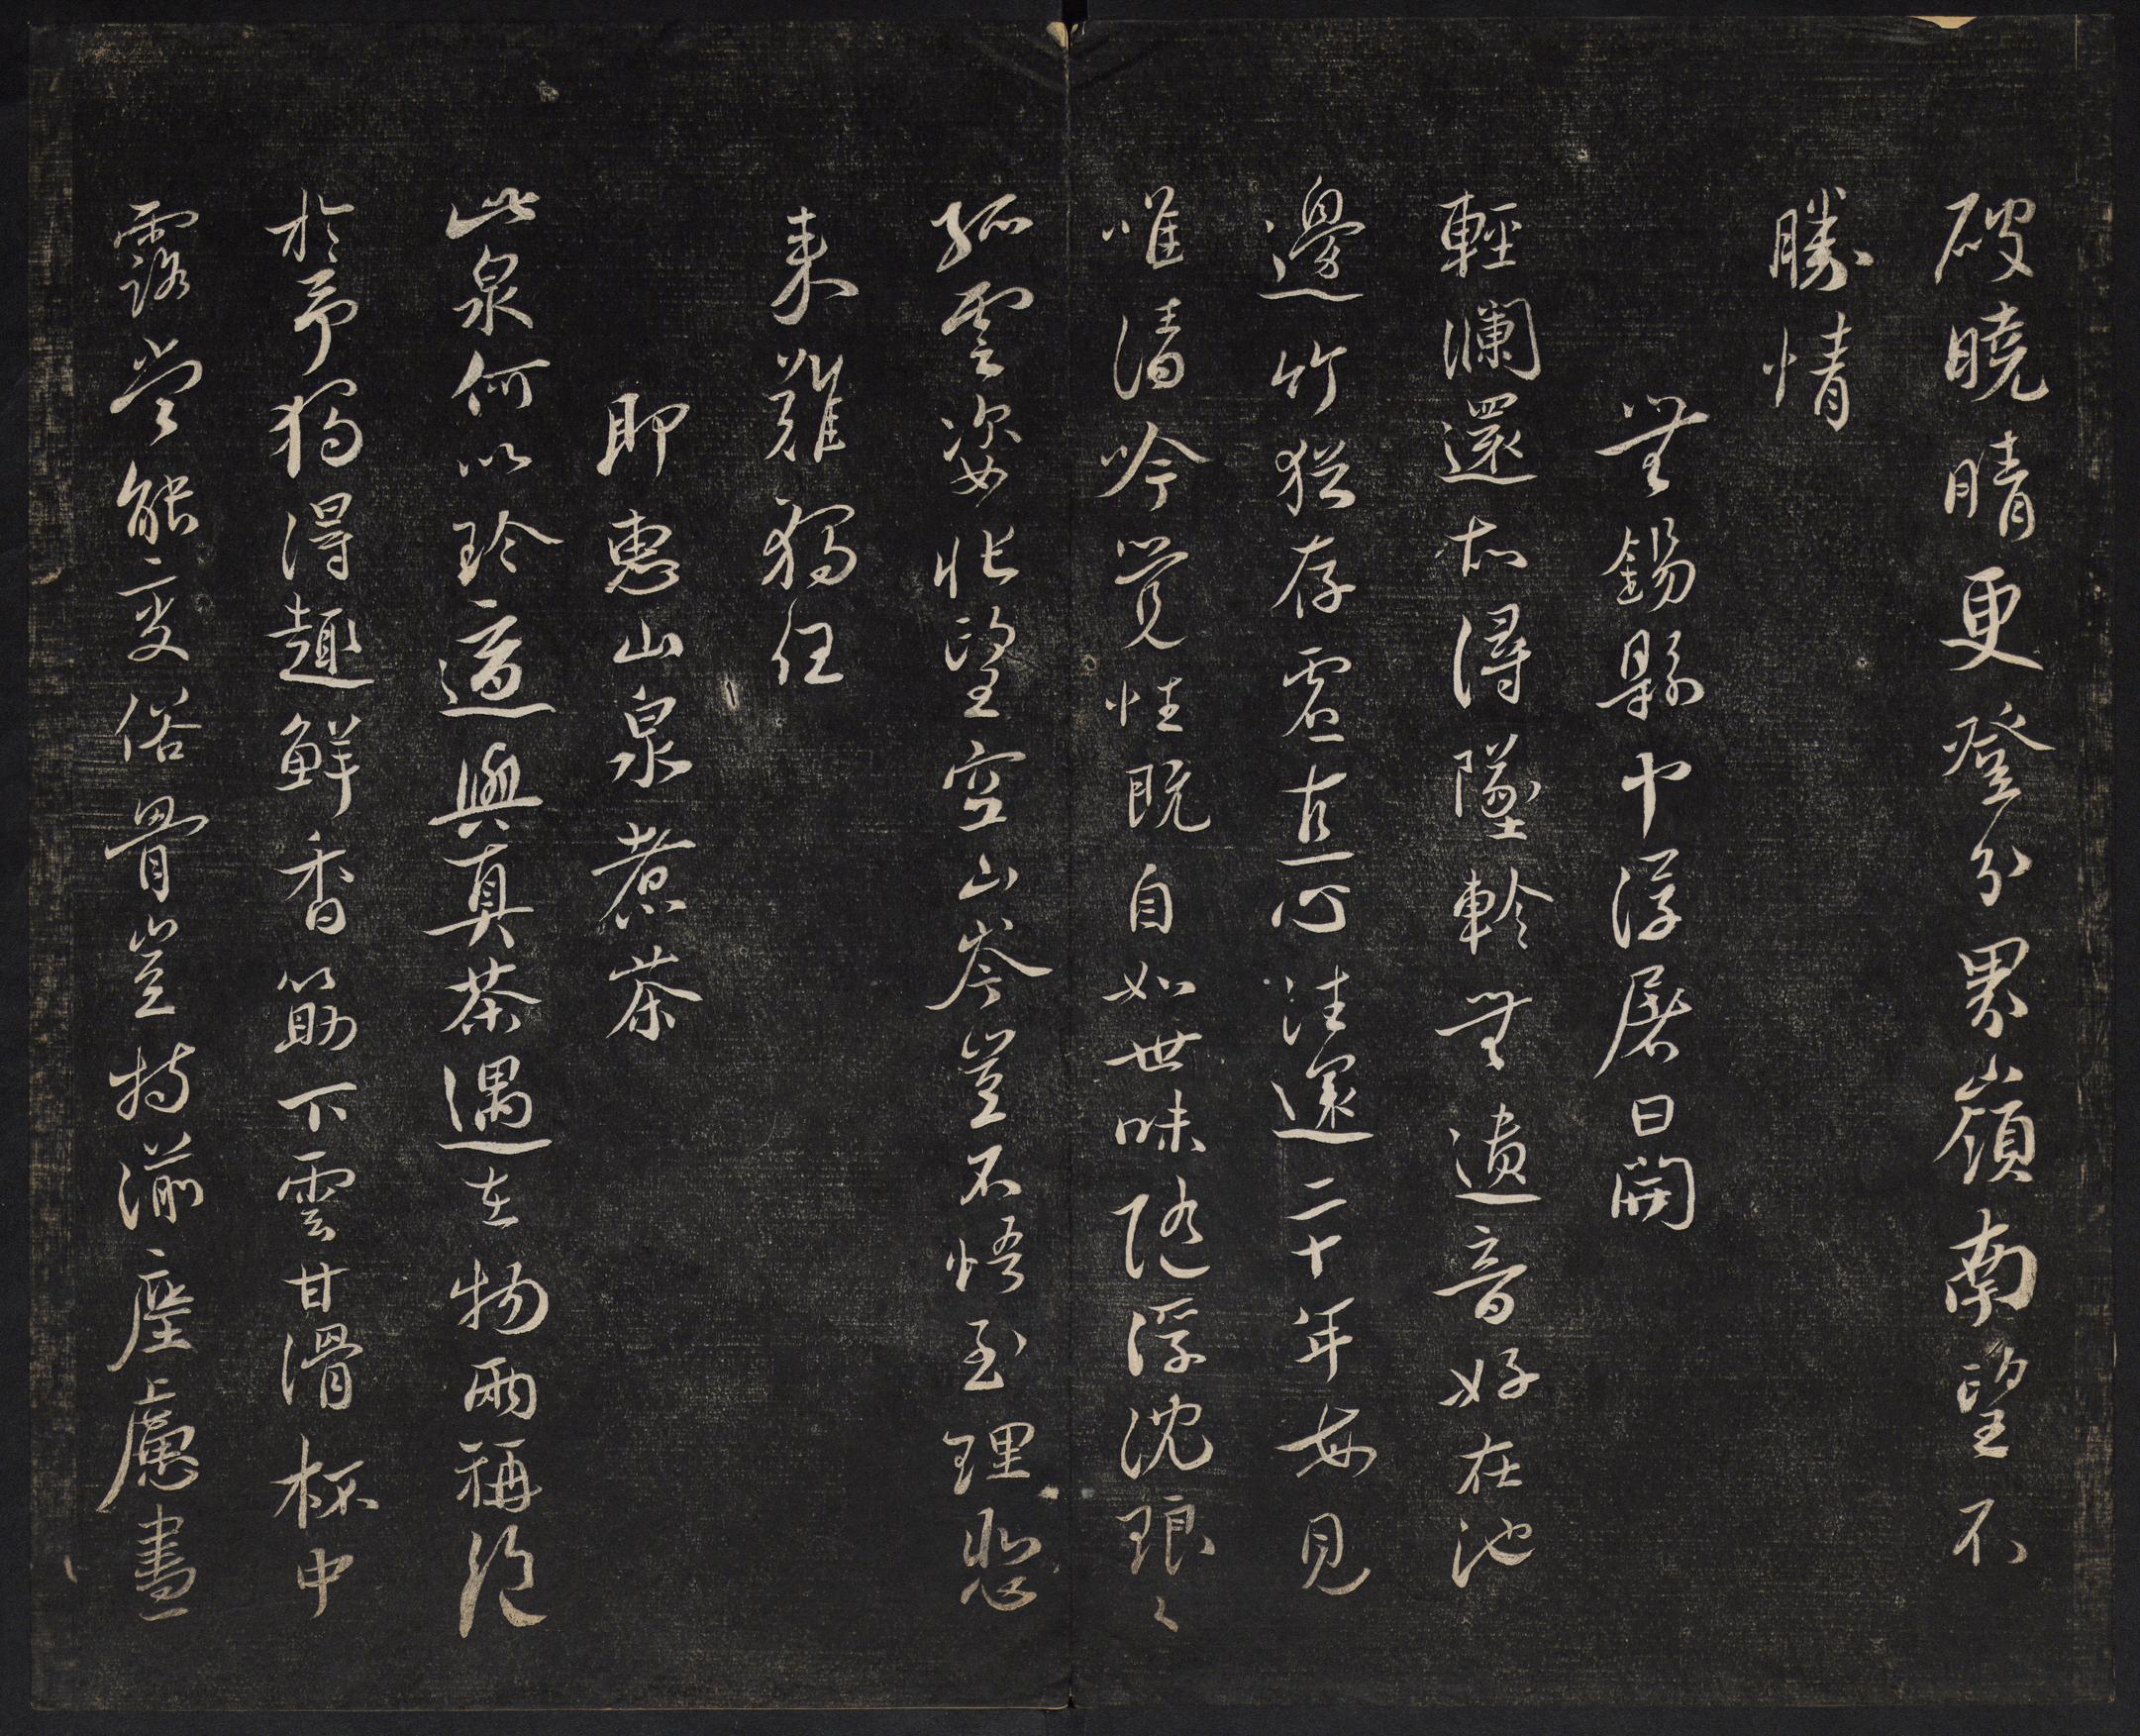 破曉晴更登分界嶺南望不
勝情
無錫縣中浮屠日開
輕瀾還知得墜軫無遺音好在池
邊竹猶存虛直心淮還二十年每見
唯清吟覺性既自如世味隨浮沈琅々
孤雲姿悵望空山岑豈不悟至理愁
來難獨任
即惠山泉煮茶
此泉何以珍適與真茶遇在物兩稱絕
於予獨得趣鮮香箸下雲甘滑杯中
露嘗能變俗骨豈特湔塵慮晝